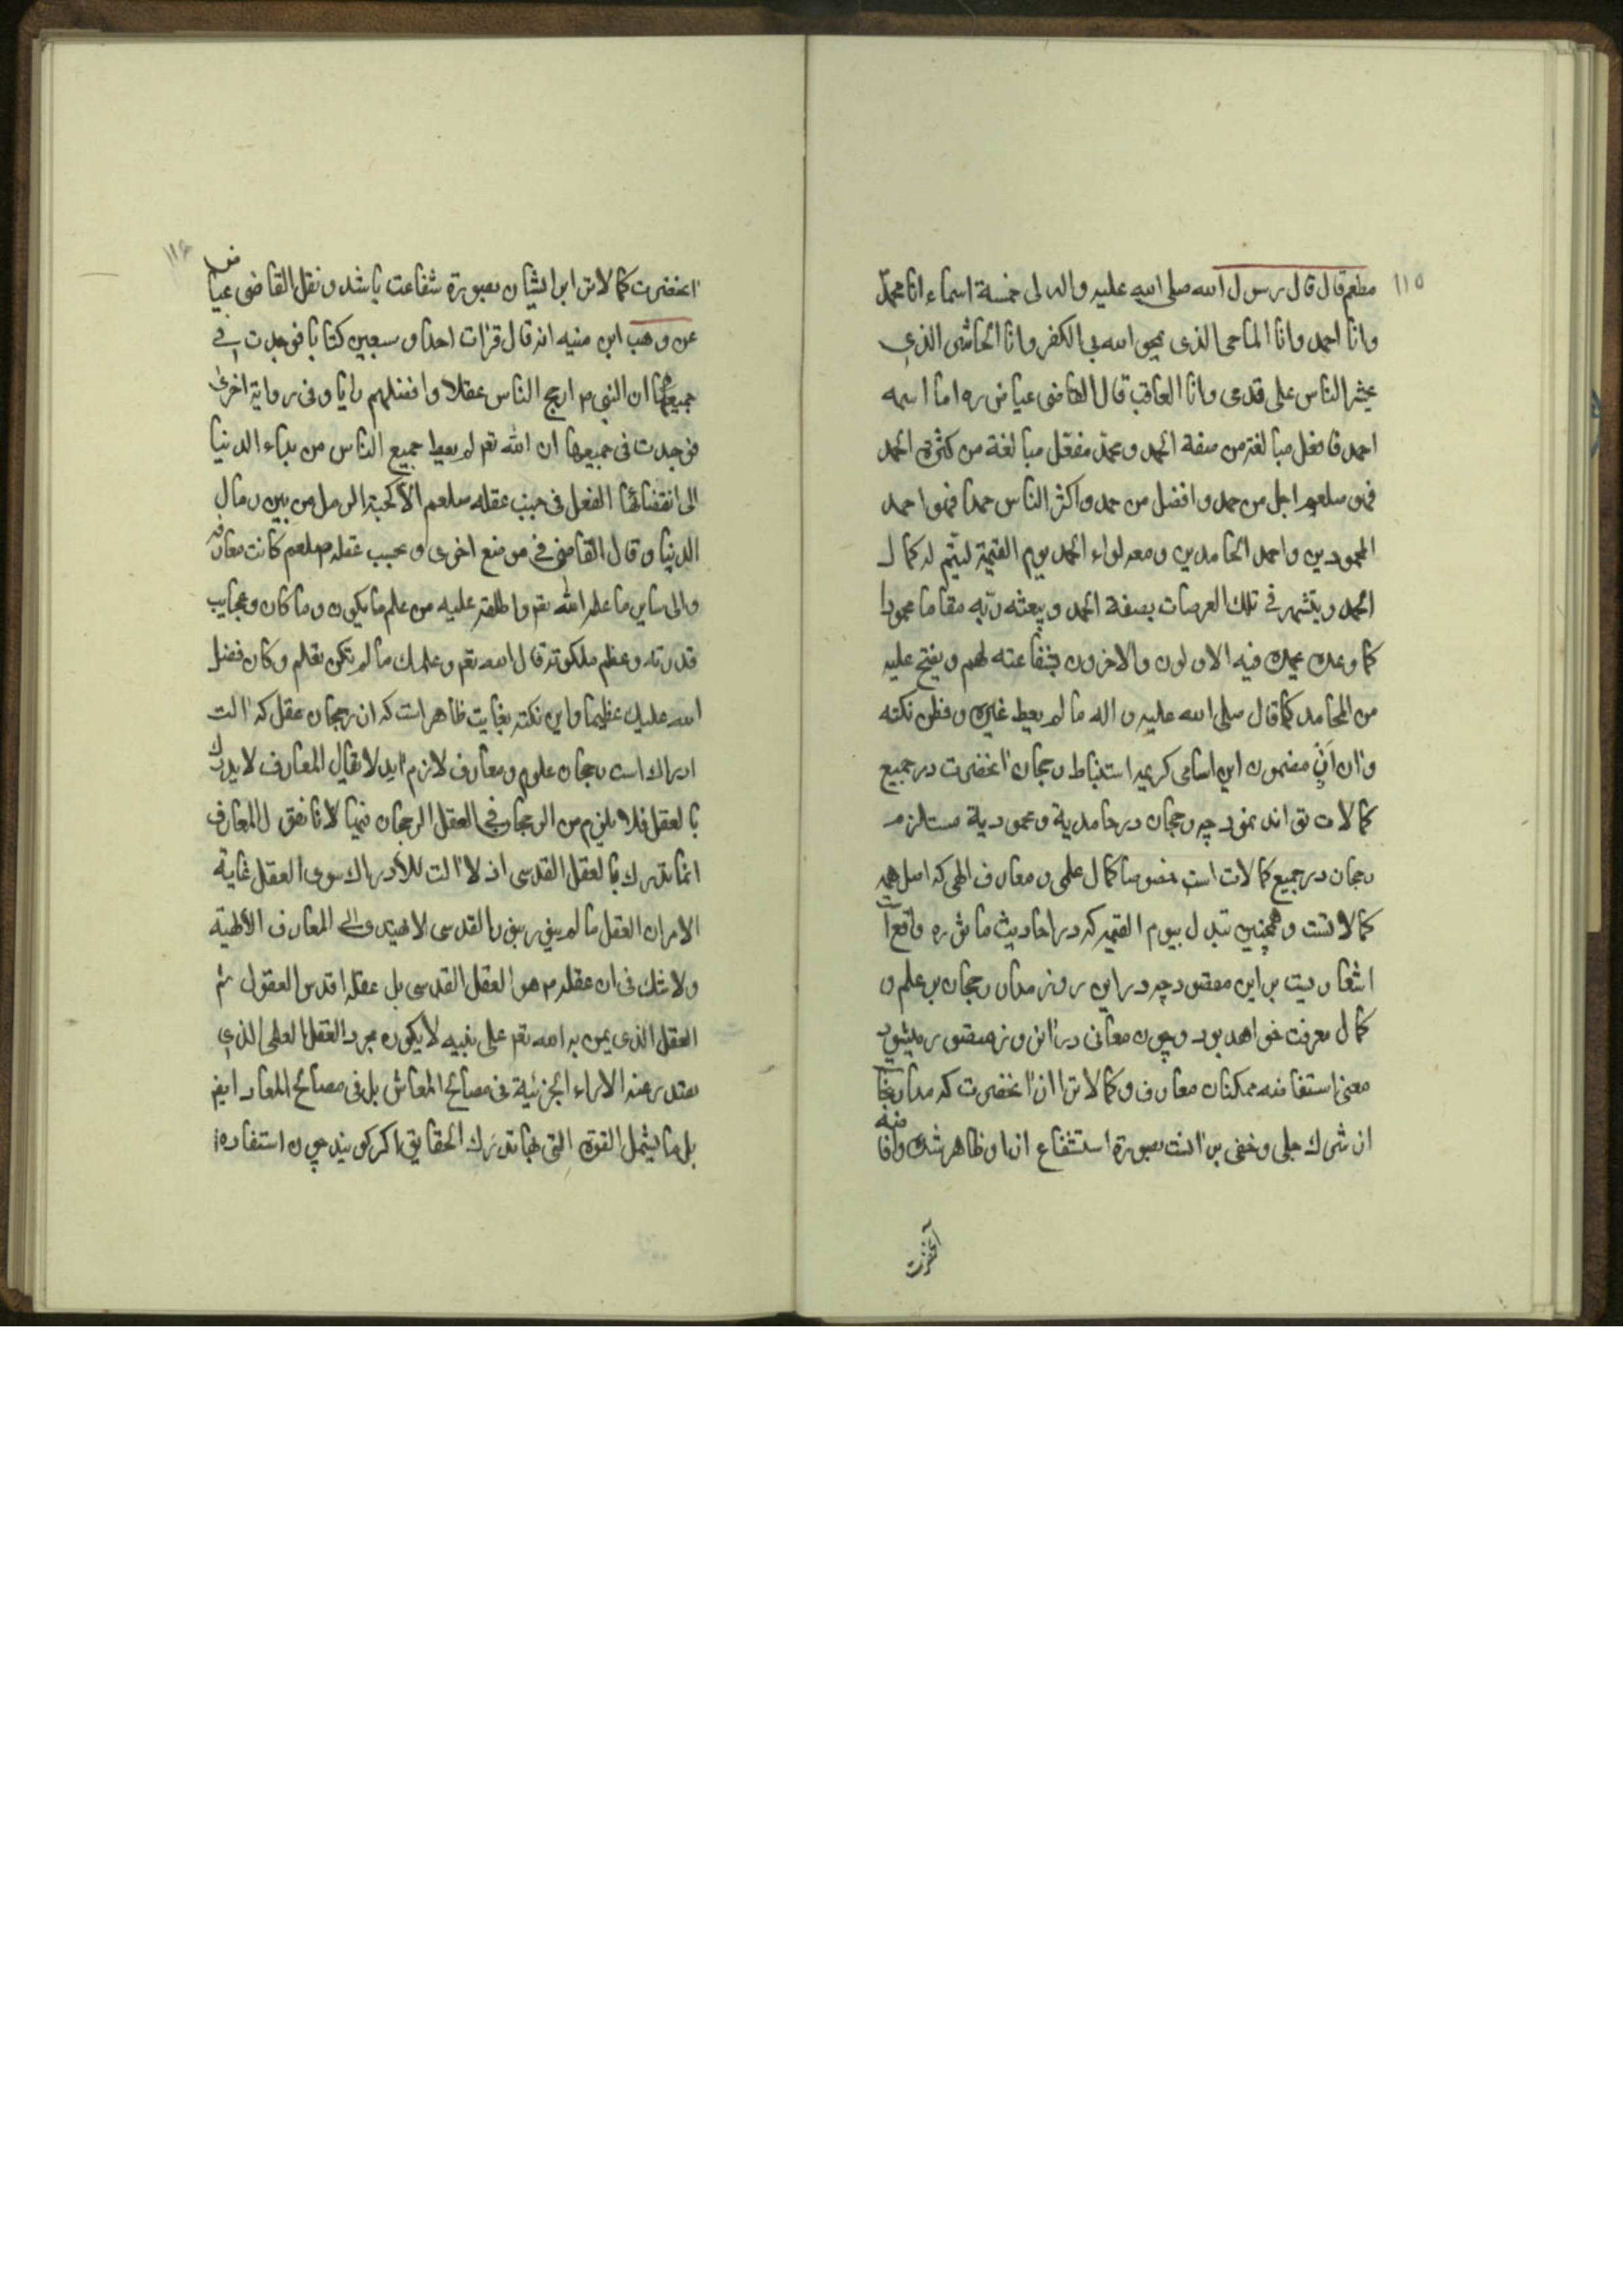 ١١٥
مطعم قال قال رسول الله صلى الله عليه واله لى خمسة اسماء انا محمد
وانا احمد وانا الماحى الذى يمحو الله بى الكفر وانا الحاشر الذي
يحشر الناس على قدمى وانا العاقب قال القاضى عياض ره اما اسمه
احمد فافعل مبالغة من صفة الحمد ومحمد مفعل مبالغة من كثرة الحمد
فهو صلعم اجل من حمد وافضل من حمد واكثر الناس حمدا فهو احمد
المحمودين واحمد الحامدين ومعه لواء الحمد يوم القيمة ليتم له كمال
الحمد ويتشهر في تلك العرصات بصفة الحمد ويبعثه ربه مقاما محمودا
كما وعده يحمده فيه الاولون والاخرون بشفاعته لهم ويفتح عليه
من المحامد كما قال صلى الله عليه واله ما لم يعط غيره وفطن نكته
دان از مضمون اين اسامى كريمه استنباط رجحان آنحضرت در جميع
كمالات تواند نمود چه رجحان در حامدية ومحمودية مستلزم
رجحان در جميع كمالات است خصوصا كمال علمى ومعارف الهى كه اصل همه
كمالاتست وهمچنين تبدل بيوم القيمه كه در احاديث ماثوره واقع است
اشعاريست بر اين مقصود چه در اين روز مدار رجحان بر علم و
كمال معرفت خواهد بود وچون معانى در آن روز مصور ميشود
معنى استفاضه ممكنان معارف وكمالات را از آنحضرت كه مدار نجات
از شرك جلى وخفى بر آنست بصورة استشفاع از او ظاهر شده وافاضه
آنحضرت
١١٦
آنحضرت كمالات را بر ايشان بصورة شفاعت باشد ونقل القاضى عياض
عن وهب ابن منبه انه قال قرات احدا وسبعين كتابا فوجدت في
جميعها ان النبى م ارجح الناس عقلا وافضلهم رايا وفى رواية اخرى
فوجدت فى جميعها ان الله تعم لم يعط جميع الناس من بداء الدنيا
الى انقضائها العقل فى جنب عقله صلعم الا كحبة الرمل من بين رمال
الدنيا وقال القاضى في موضع اخرى وبحسب عقله صلعم كانت معارفه
والى ساير ما علمه الله تعم واطلعه عليه من علم ما يكون وما كان وعجايب
قدرته وعظم ملكوته قال الله تعم وعلمك ما لم تكن تعلم وكان فضل
الله عليك عظيما واين نكته بغايت ظاهر است كه از رجحان عقل كه آلت
ادراك است رجحان علوم ومعارف لازم آيد لا يقال المعارف لا يدرك
بالعقل فلا يلزم من الرجحان في العقل الرجحان فيها لانا نقول المعارف
انما تدرك بالعقل القدسى اذ لا آلت للادراك سوى العقل غاية
الامر ان العقل ما لم ينور بنور القدسى لا يهتدى الى المعارف الالهية
ولا شك فى ان عقله م هو العقل القدسى بل عقله اقدس العقول ثم
العقل الذى يمن به الله تعم على نبيه لا يكون مجرد العقل العلمى الذي
يصدر عنه الاراء الجزئية فى مصالح المعاش بل فى مصالح المعاد ايضا
بل ما يشمل القوة التى بها تدرك الحقايق اكر كويند چون استفاده